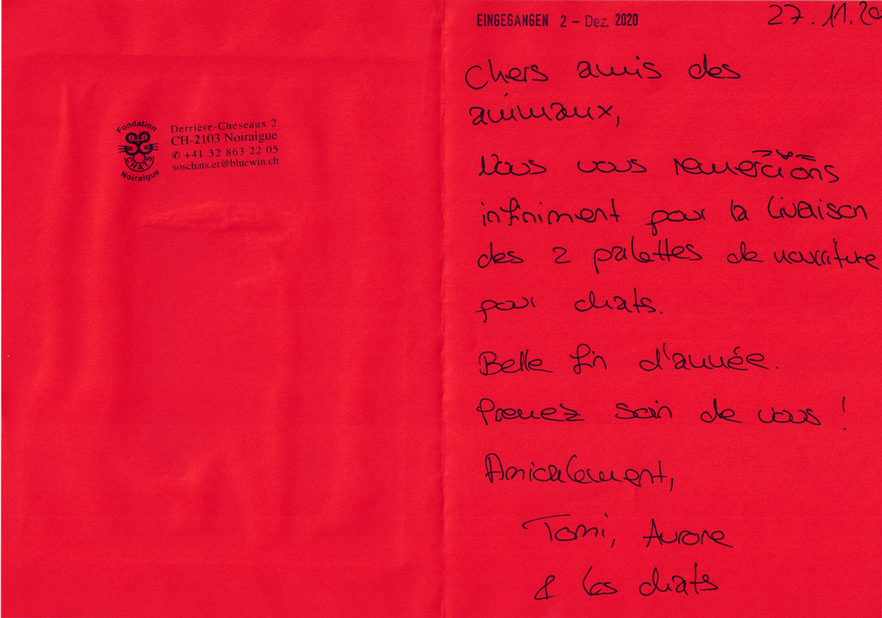 Fondation
CHATS
Noiraigue
Derrière-Cheseaux 2
CH-2103 Noiraigue
✆ +41 32 863 22 05
soschats.et@bluewin.ch
EINGEGANGEN 2 – Dez. 2020
27.11.20
Chers amis des
animaux,
Nous vous remercions
infiniment pour la livraison
des 2 palettes de nourriture
pour chats.
Belle fin d'année.
Prenez soin de vous !
Amicalement,
Tomi, Aurore
& les chats